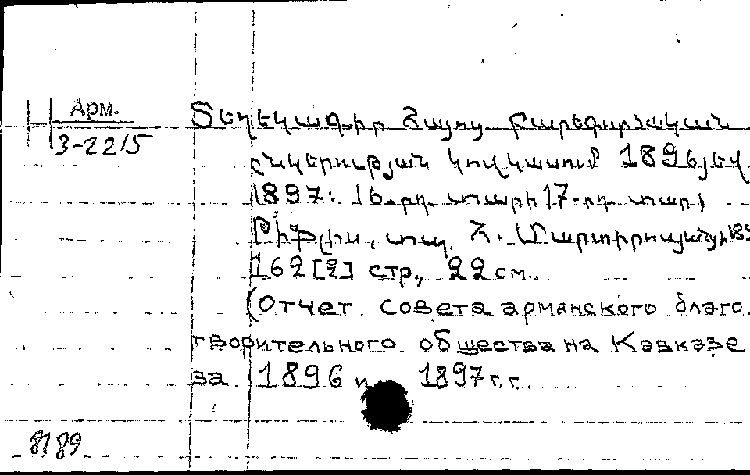 Арм.
3-2215
Տեղեկագիր Հայոց բարեգործական
ընկերության կովկասում 1896 և
1897: 16-րդ տարի 17-րդ տարի
Թիֆլիս, տպ. Հ. Մարտիրոսյանցի
162 [2] стр., 22 см.
(Отчет совета армянского благо-
творительного общества на Кавказе
за 1896 и 1897 г.г.
8189